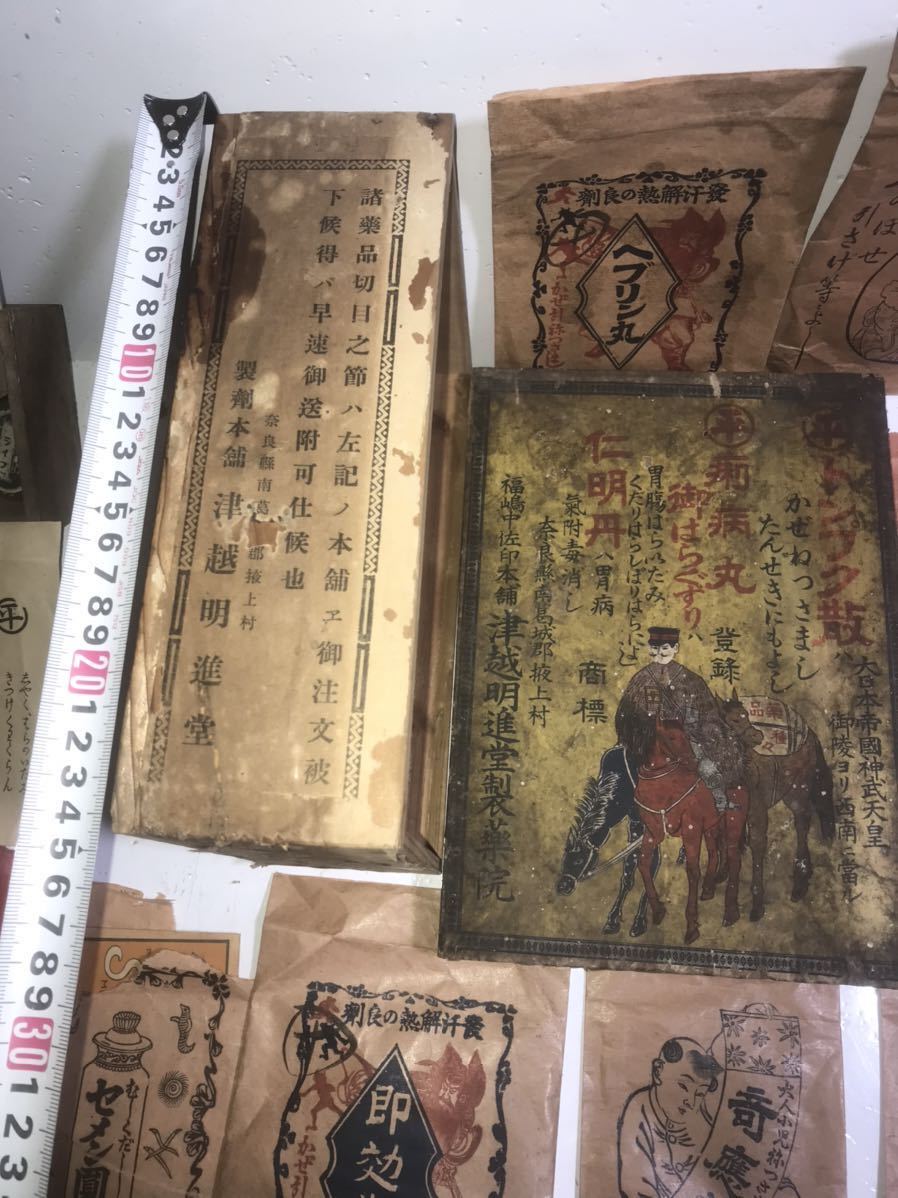 諸藥品切目之節ハ左記ノ本舗ヱ御注文被
下候得バ早速御送附可仕候也
奈良縣南葛
郡掖上村
製劑本舗 津越明進堂
發汗解熱の良劑
ヘブリン丸
引さげ等によし
トンプク散ハ
かぜねつさまし
たんせきにもよし
大日本帝國神武天皇
御陵ヨリ西南ニ當ル
平
痢病丸
登錄
御はらぐすりハ
胃腸はらいたみ
くだりはらしばりはらによし
仁明丹ハ胃病
商標
氣附毒消し
奈良縣南葛城郡掖上村
福嶋中佐印本舗 津越明進堂製薬院
藥品
種々
平
きつけくわくらん
むしくだし
セメン圓
發汗解熱の良劑
即効
かぜ引
奇應
大人小児
2 3 4 5 6 7 8 9 10 1 2 3 4 5 6 7 8 9 20 1 2 3 4 5 6 7 8 9 30 1 2 3